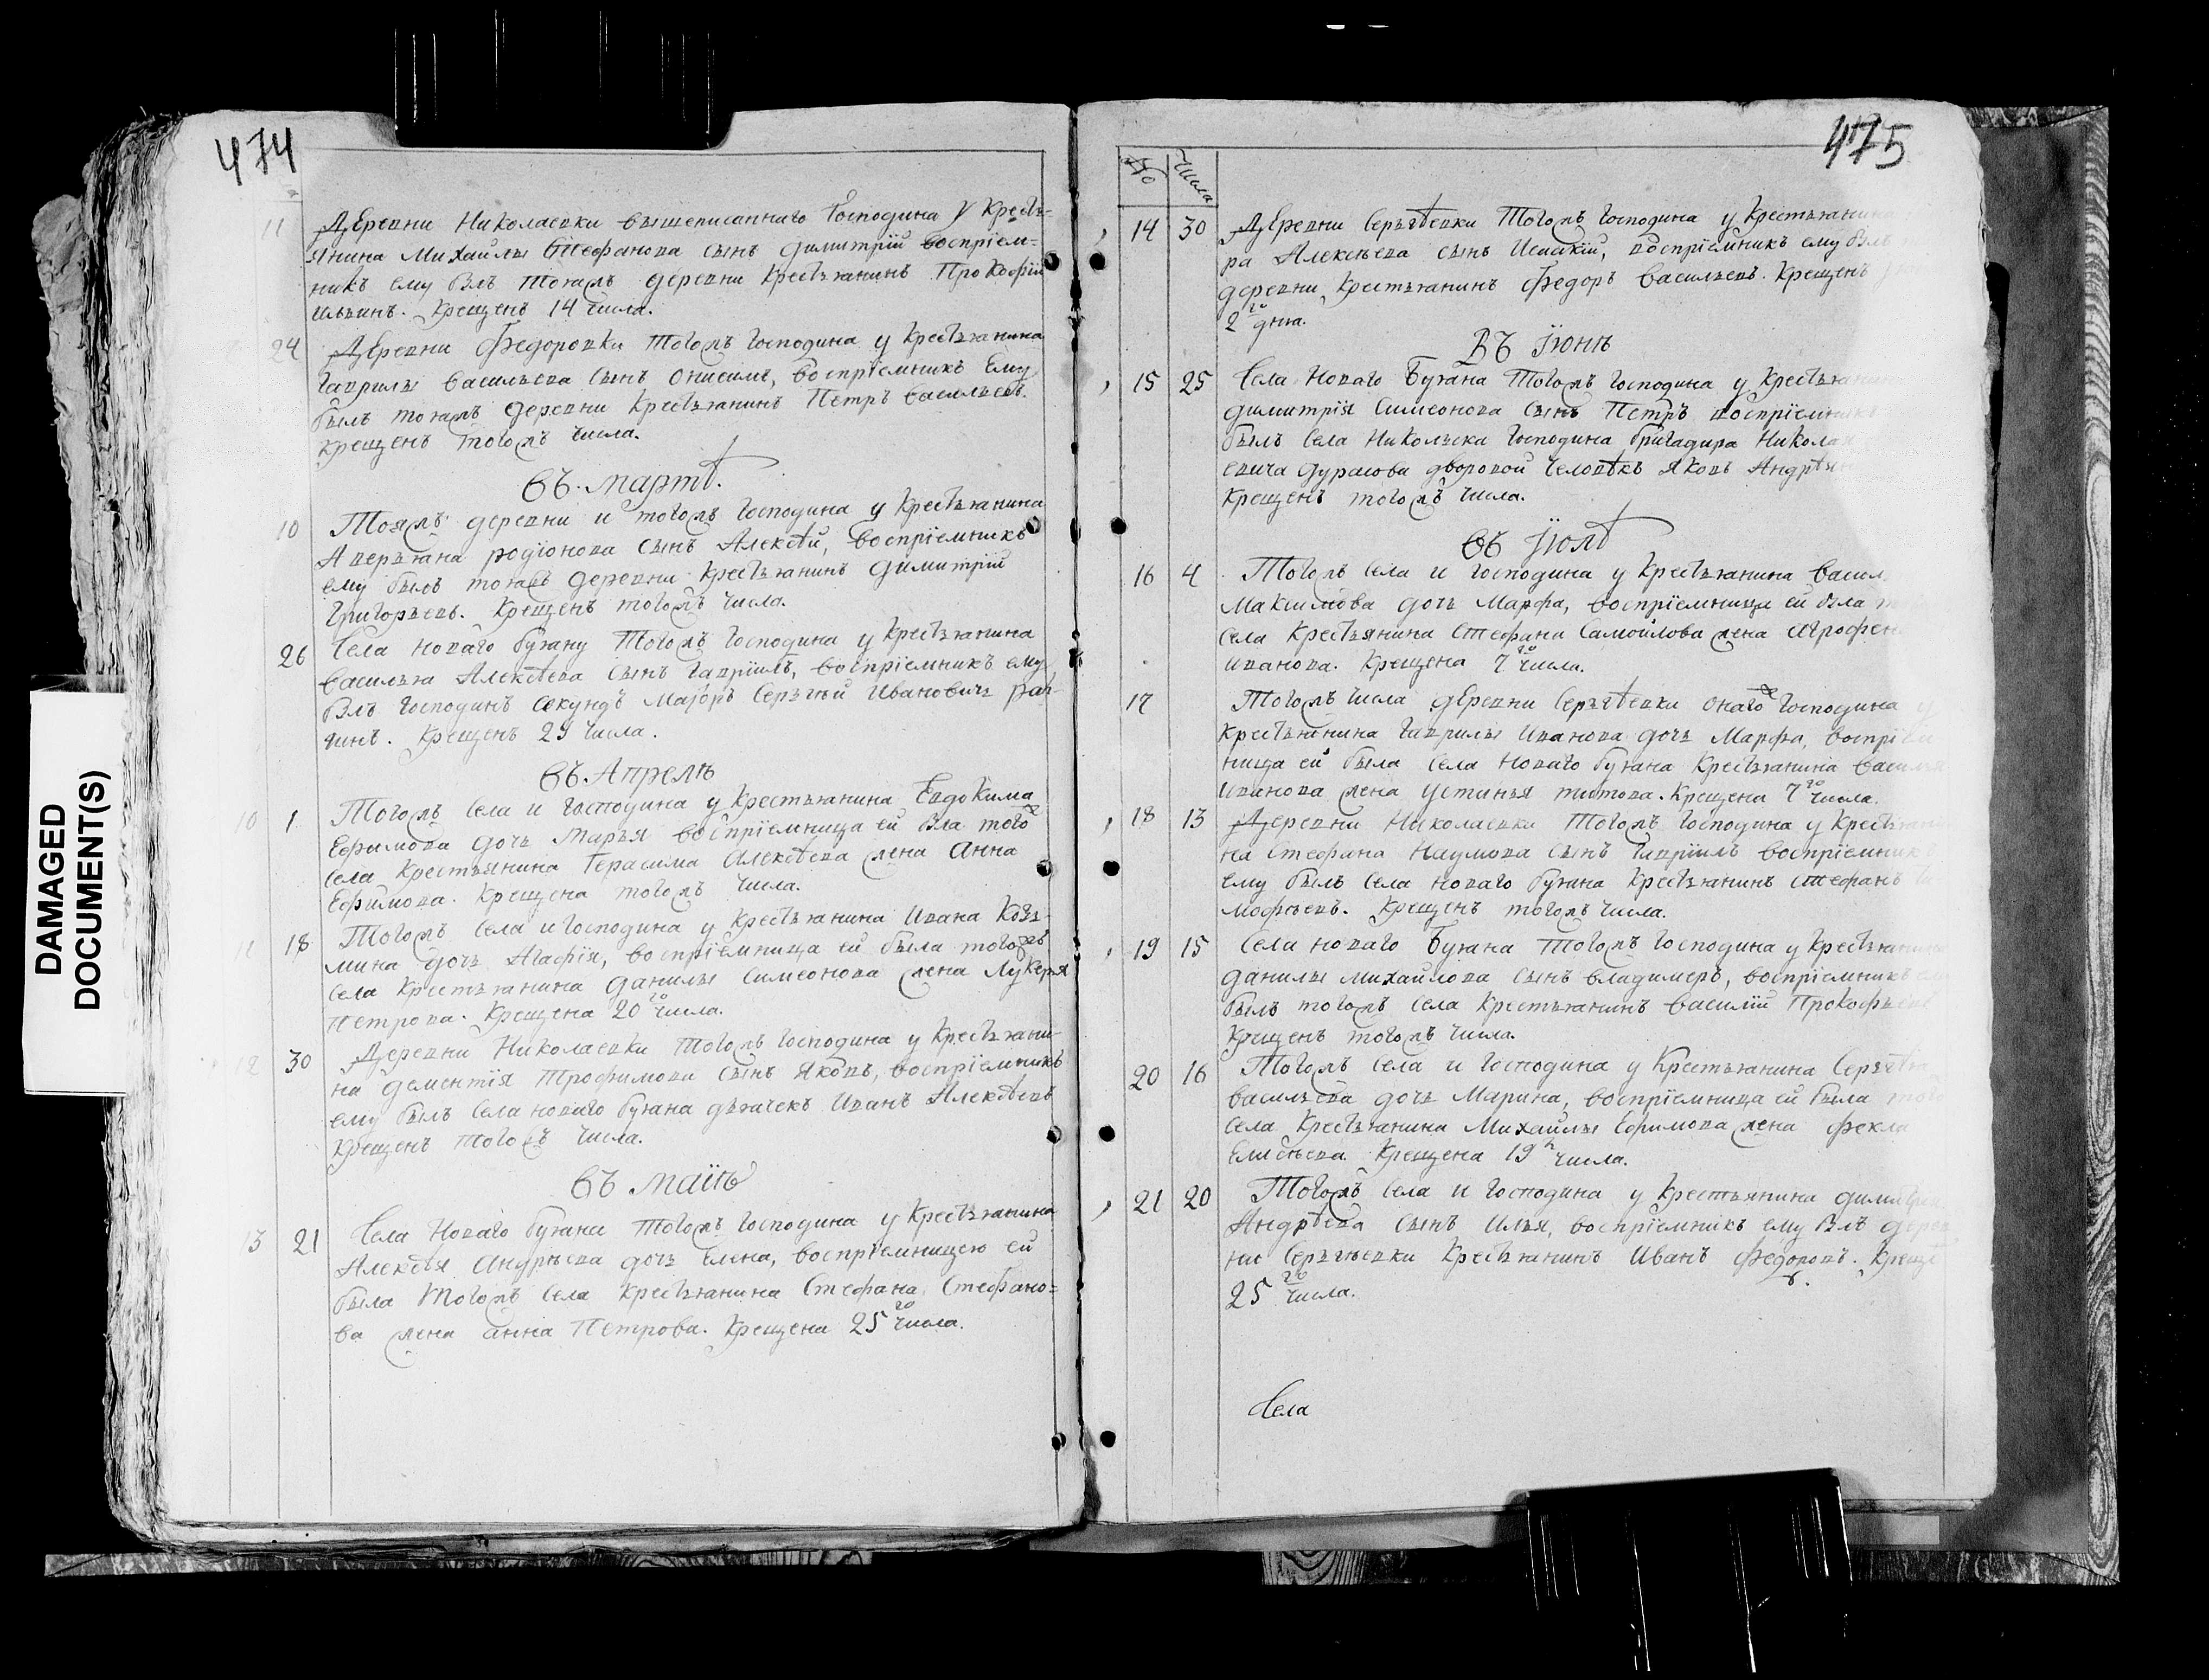 474
11 Деревни Николаевки вышеписаннаго Господина у Кресть-
янина Михайлы Стефанова сынъ Димитрїй воспрїем-
никъ ему былъ тояжъ деревни Крестьянинъ Прокофїй
Ильинъ. Крещенъ 14 числа.
24 Деревни Федоровки тогожъ Господина у Крестьянина
Гаврилы Васильева сынъ Онисимъ, воспрїемникъ ему
былъ тояжъ деревни Крестьянинъ Петръ Васильевъ.
Крещенъ тогожъ числа.
Въ Мартѣ.
10 Тояжъ деревни и тогожъ Господина у Крестьянина
Аверьяна Родїонова сынъ Алексѣй, воспрїемникъ
ему былъ тояжъ деревни Крестьянинъ Димитрїй
Григорьевъ. Крещенъ тогожъ числа.
26 Села Новаго Бугану тогожъ Господина у Крестьянина
Василья Алексѣева сынъ Гаврїилъ, воспрїемникъ ему
былъ Господинъ Секундъ Маїоръ Сергѣй Ивановичъ
Крещенъ 29 числа.
Въ Апрелѣ
10 1 Тогожъ села и Господина у Крестьянина Евдокима
Ефимова дочь Марья воспрїемница ей была тогожъ
села Крестьянина Герасима Алексѣева жена Анна
Ефимова. Крещена тогожъ числа.
11 18 Тогожъ села и Господина у Крестьянина Ивана Козь-
мина дочь Агафїя, воспрїемница ей была тогожъ
села Крестьянина Данилы Симеонова жена Лукерья
Петрова. Крещена 20го числа.
12 30 Деревни Николаевки тогожъ Господина у Крестьяни-
на Дементїя Трофимова сынъ Яковъ, воспрїемникъ
ему былъ села Новаго Бугана дьячекъ Иванъ Алексѣевъ
Крещенъ тогожъ числа.
Въ Маїѣ
13 21 Села Новаго Бугана тогожъ Господина у Крестьянина
Алексѣя Андрѣева дочь Елена, воспрїемницею ей
была тогожъ села Крестьянина Стефана Стефано=
ва жена Анна Петрова. Крещена 25го числа.
475
No Числа
14 30 Деревни Сергѣевки тогожъ Господина у Крестьянина
ра Алексѣева сынъ Исакїй, воспрїемникъ ему былъ
деревни Крестьянинъ Федоръ Васильевъ. Крещенъ
2го дня.
Въ Їюнѣ
15 25 Села Новаго Бугана тогожъ Господина у Крестьянина
Димитрїя Симеонова сынъ Петръ воспрїемникъ
былъ села Никольска Господина Бригадира Николая
евича Дурасова дворовой человѣкъ Яковъ
Крещенъ тогожъ числа.
Въ Їюлѣ
16 4 Тогожъ села и Господина у Крестьянина Васил
Максимова дочь Марфа, воспрїемница ей была
села Крестьянина Стефана Самойлова жена Агрофен
Иванова. Крещена 7го числа.
17 Тогожъ числа деревни Сергѣевки онагожъ Господина у
Крестьянина Гаврилы Иванова дочь Марфа, воспрїем
ница ей была села Новаго Бугана Крестьянина Василья
Иванова жена Устинья Титова. Крещена 7го числа.
18 13 Деревни Николаевки тогожъ Господина у Крестьяни
на Стефана Наумова сынъ Гаврїилъ воспрїемникъ
ему былъ села Новаго Бугана Крестьянинъ Стефанъ Ти
мофѣевъ. Крещенъ тогожъ числа.
19 15 Села Новаго Бугана тогожъ Господина у Крестьянина
Данилы Михайлова сынъ Владимеръ, воспрїемникъ
былъ тогожъ села Крестьянинъ Василїй Прокофьевъ
Крещенъ тогожъ числа.
20 16 Тогожъ села и Господина у Крестьянина Сергѣя
Васильева дочь Марина, воспрїемница ей была того
села Крестьянина Михайлы Ефимова жена Фекла
Елисѣева. Крещена 19го числа.
21 20 Тогожъ села и Господина у Крестьянина Димитрия
Андрѣева сынъ Илья, воспрїемникъ ему былъ дерев
ни Сергѣевки Крестьянинъ Иванъ Федоровъ. Креще
25го числа.
Села
DAMAGED
DOCUMENT(S)